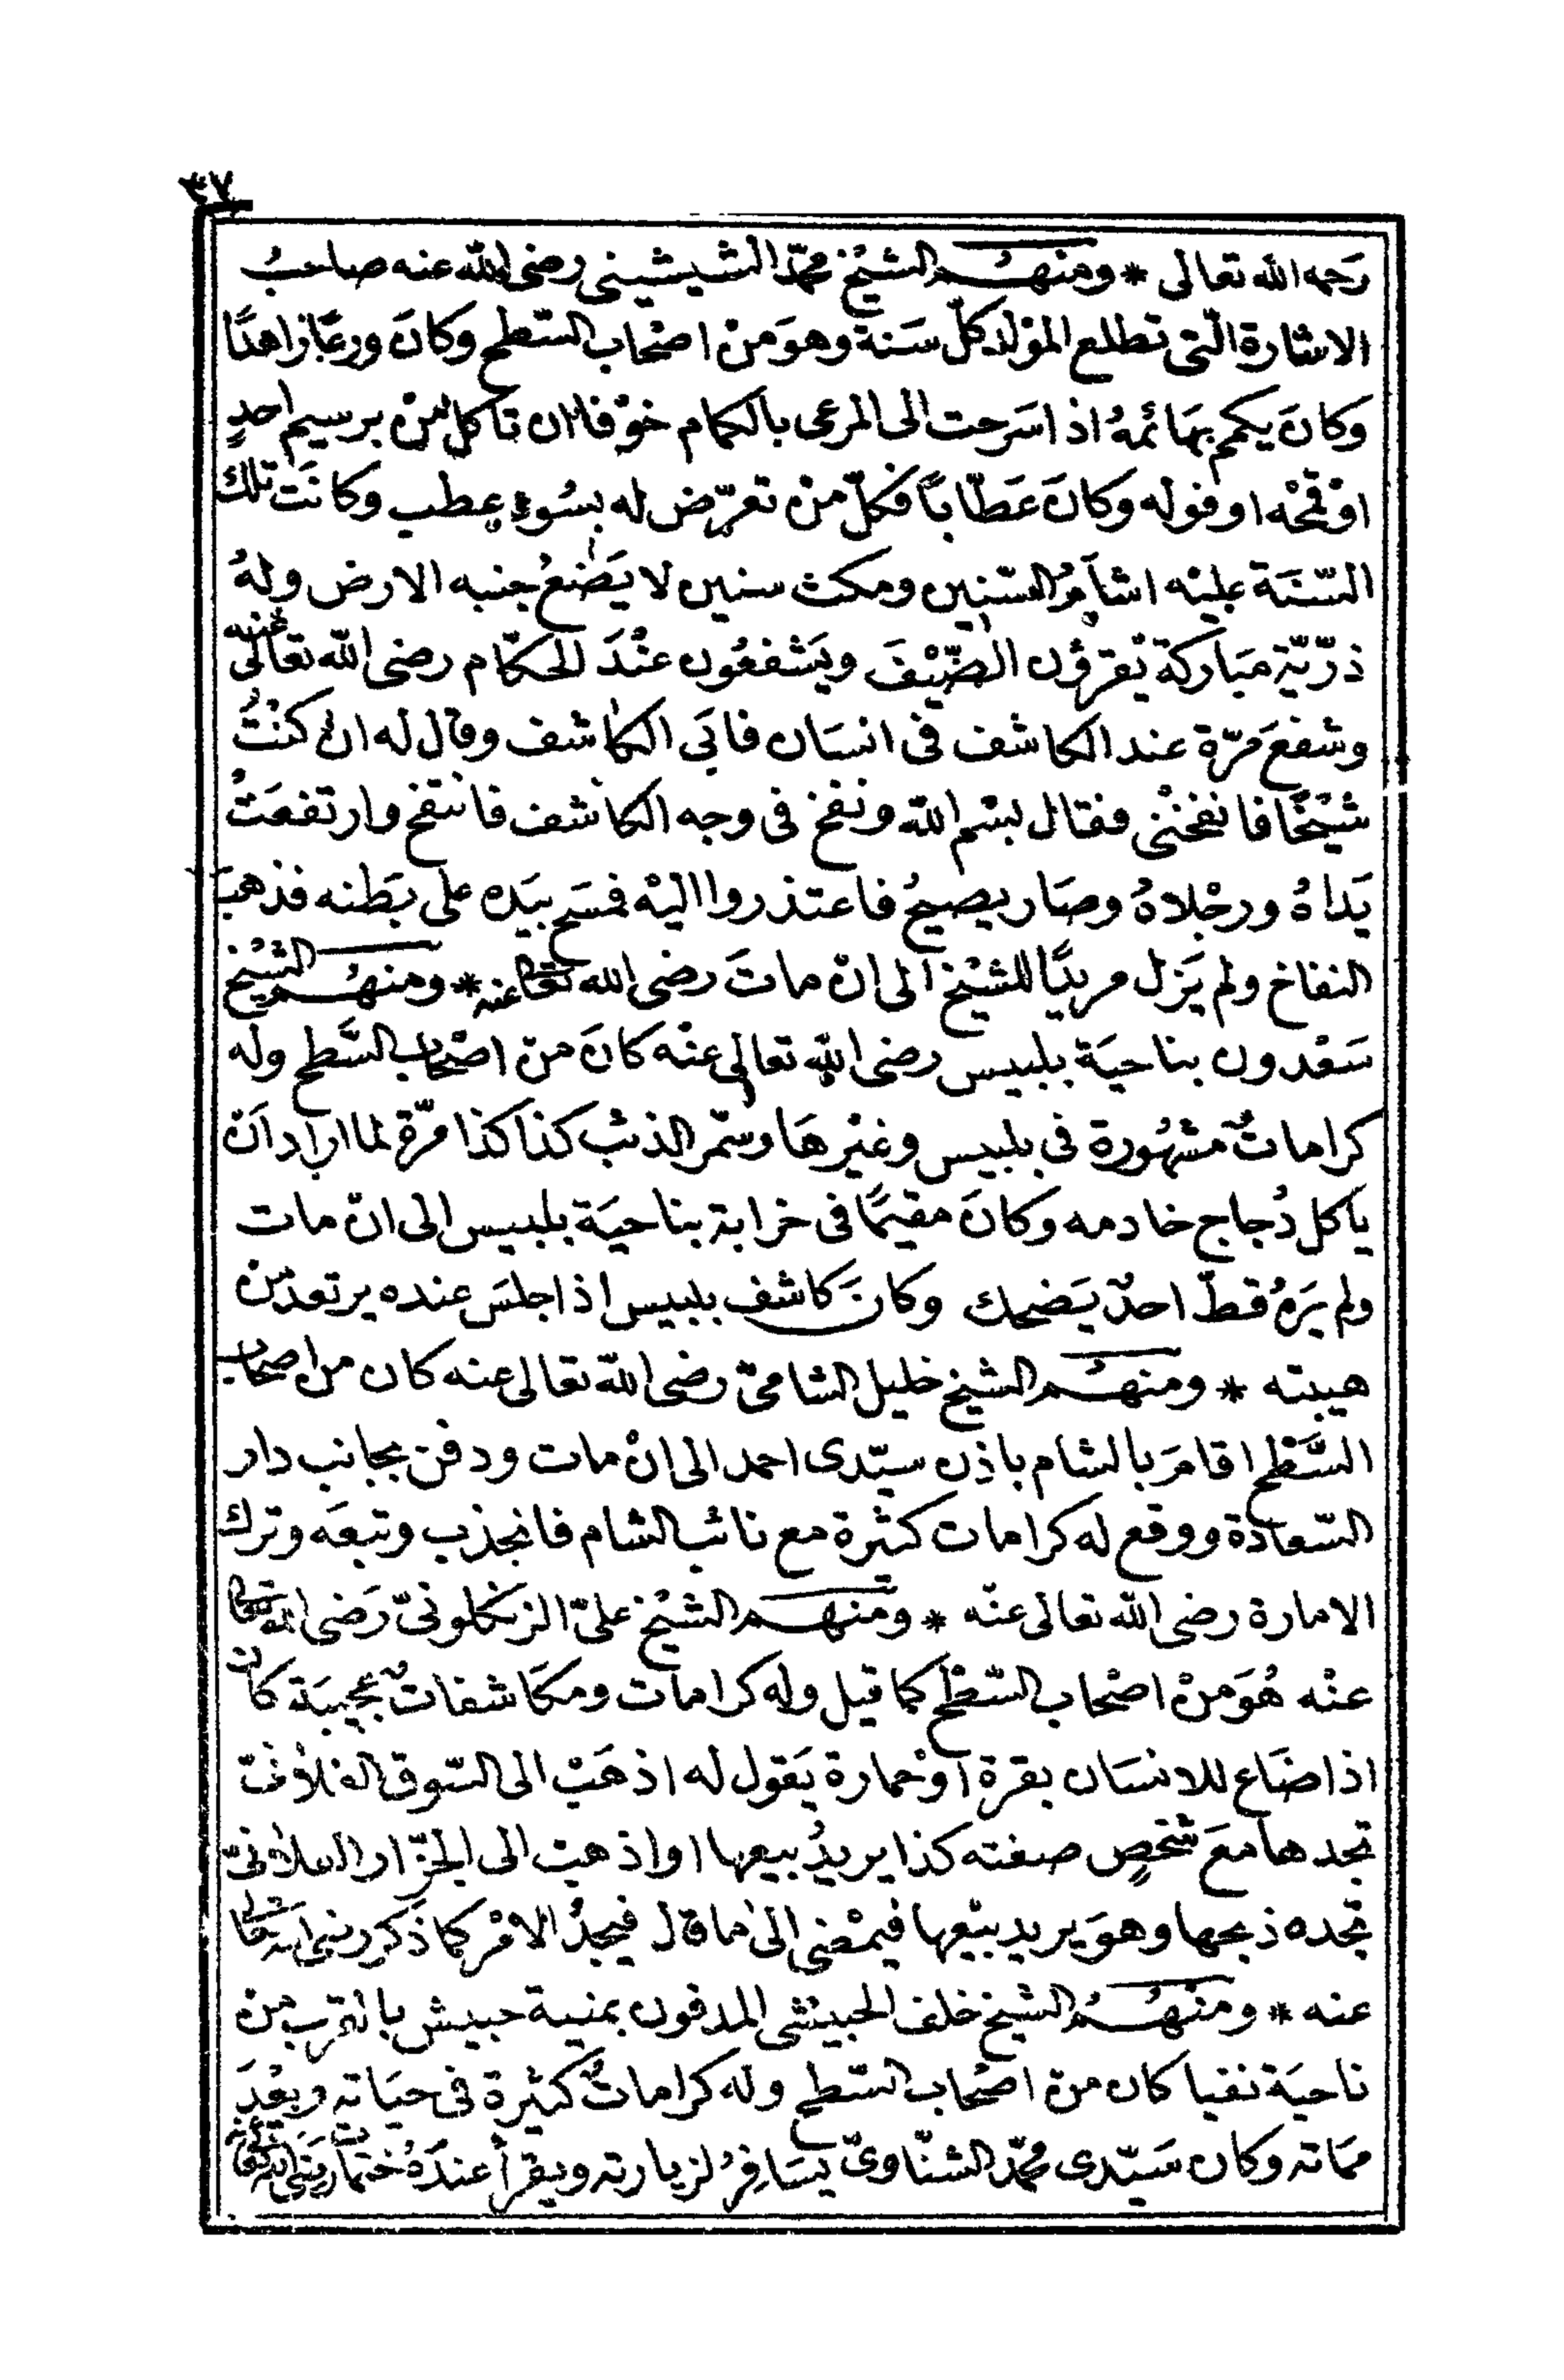 ٣٧
رَحمه الله تعالى * ومنهُم الشيْخ محمّد الشيشينى رضى الله عنه صاحبُ
الاشارة الّتى تطلع المَوْلد كلّ سَنة وهوَ منْ اصْحاب السّطح وكانَ ورعًا زاهدًا
وكانَ يكمم بهَائمهُ اذا سَرحت الى المرعى بالكمام خوْفا ان تأكل منْ برسيم احدٍ
اوْ قمْحه او فوله وكانَ عَطّابًا فكلّ منْ تعرّض له بسُوءٍ عطب وكانَت تلك
السّنَة عليْه اشأمُ السّنين ومكث سنين لا يَضعُ جنبه الارض ولهُ
ذرّيّة مبَاركة يُقرؤن الضّيْفَ ويَشفعُون عنْدَ الحكّام رضى الله تعالى عنه
وشفعَ مرّة عند الكاشف فى انسَان فابَى الكاشف وقال له ان كنْتُ
شيْخًا فانفخنْى فقال بسْم الله ونفخ فى وجه الكاشف فانتفخ وارتفعَتْ
يَداهُ ورجْلاهُ وصَار يصيحُ فاعتذروا اليْه فمسَح بيَده على بَطنه فذهبَ
النفاخ ولم يَزل مريدًا للشيْخ الى انْ ماتَ رضى الله تعالى عنه * ومنهُم الشيْخ
سَعْدون بناحيَة بلبيس رضى الله تعالى عنْه كانَ منْ اصْحاب السَّطح وله
كراماتٌ مشهُورة فى بلبيس وغيْرهَا وسمّر الذئب كذا كذا مرّة لما اراد اَنْ
ياكل دُجاج خادمه وكانَ مقيمًا فى خرابة بناحيَة بلبيس الى انْ مات
ولم يَرهُ قطّ احدٌ يَضحك وكانَ كاشف بلبيس اذا جلسَ عنده يرتعد منْ
هيبته * ومنهُم الشيخ خليل الشامىّ رضى الله تعالى عنه كان من اصحاب
السَّطْح اقامَ بالشام باذن سيّدى احمد الى انْ مات ودفن بجانب دار
السّعادة ووقع له كرامات كثيْرة مع نائب الشام فانجذب وتبعَه وترك
الامارة رضى الله تعالى عنْه * ومنهُم الشيْخ علىّ الزنكلونىّ رَضى الله تعالى
عنْه هُوَ منْ اصْحاب السّطْح كما قيل وله كرامات ومكاشفاتٌ عجيبَة كان
اذا ضَاع للانسَان بقرة اوْ حمارة يَقول له اذهَبْ الى السّوق الفلانىّ
تجدها معَ شخصٍ صفته كذا يريدُ بيعها او اذهب الى الجزّار الفلانىّ
تجده ذبحها وهوَ يريد بيْعها فيمْضى الى ما قال فيجدُ الامْر كما ذكر رضى الله تعالى
عنه * ومنْهُم الشيخ خلف الحبيشى المدفون بمنية حبيش بالقرب من
ناحيَة نفيا كان منْ اصْحاب السّطح وله كراماتٌ كثيرة فى حيَاته وبعْدَ
مماته وكان سَيّدى محمّد الشنّاوىّ يسَافرُ لزيارته ويقرأ عندَهُ ختمات رضى الله تعالى عنه